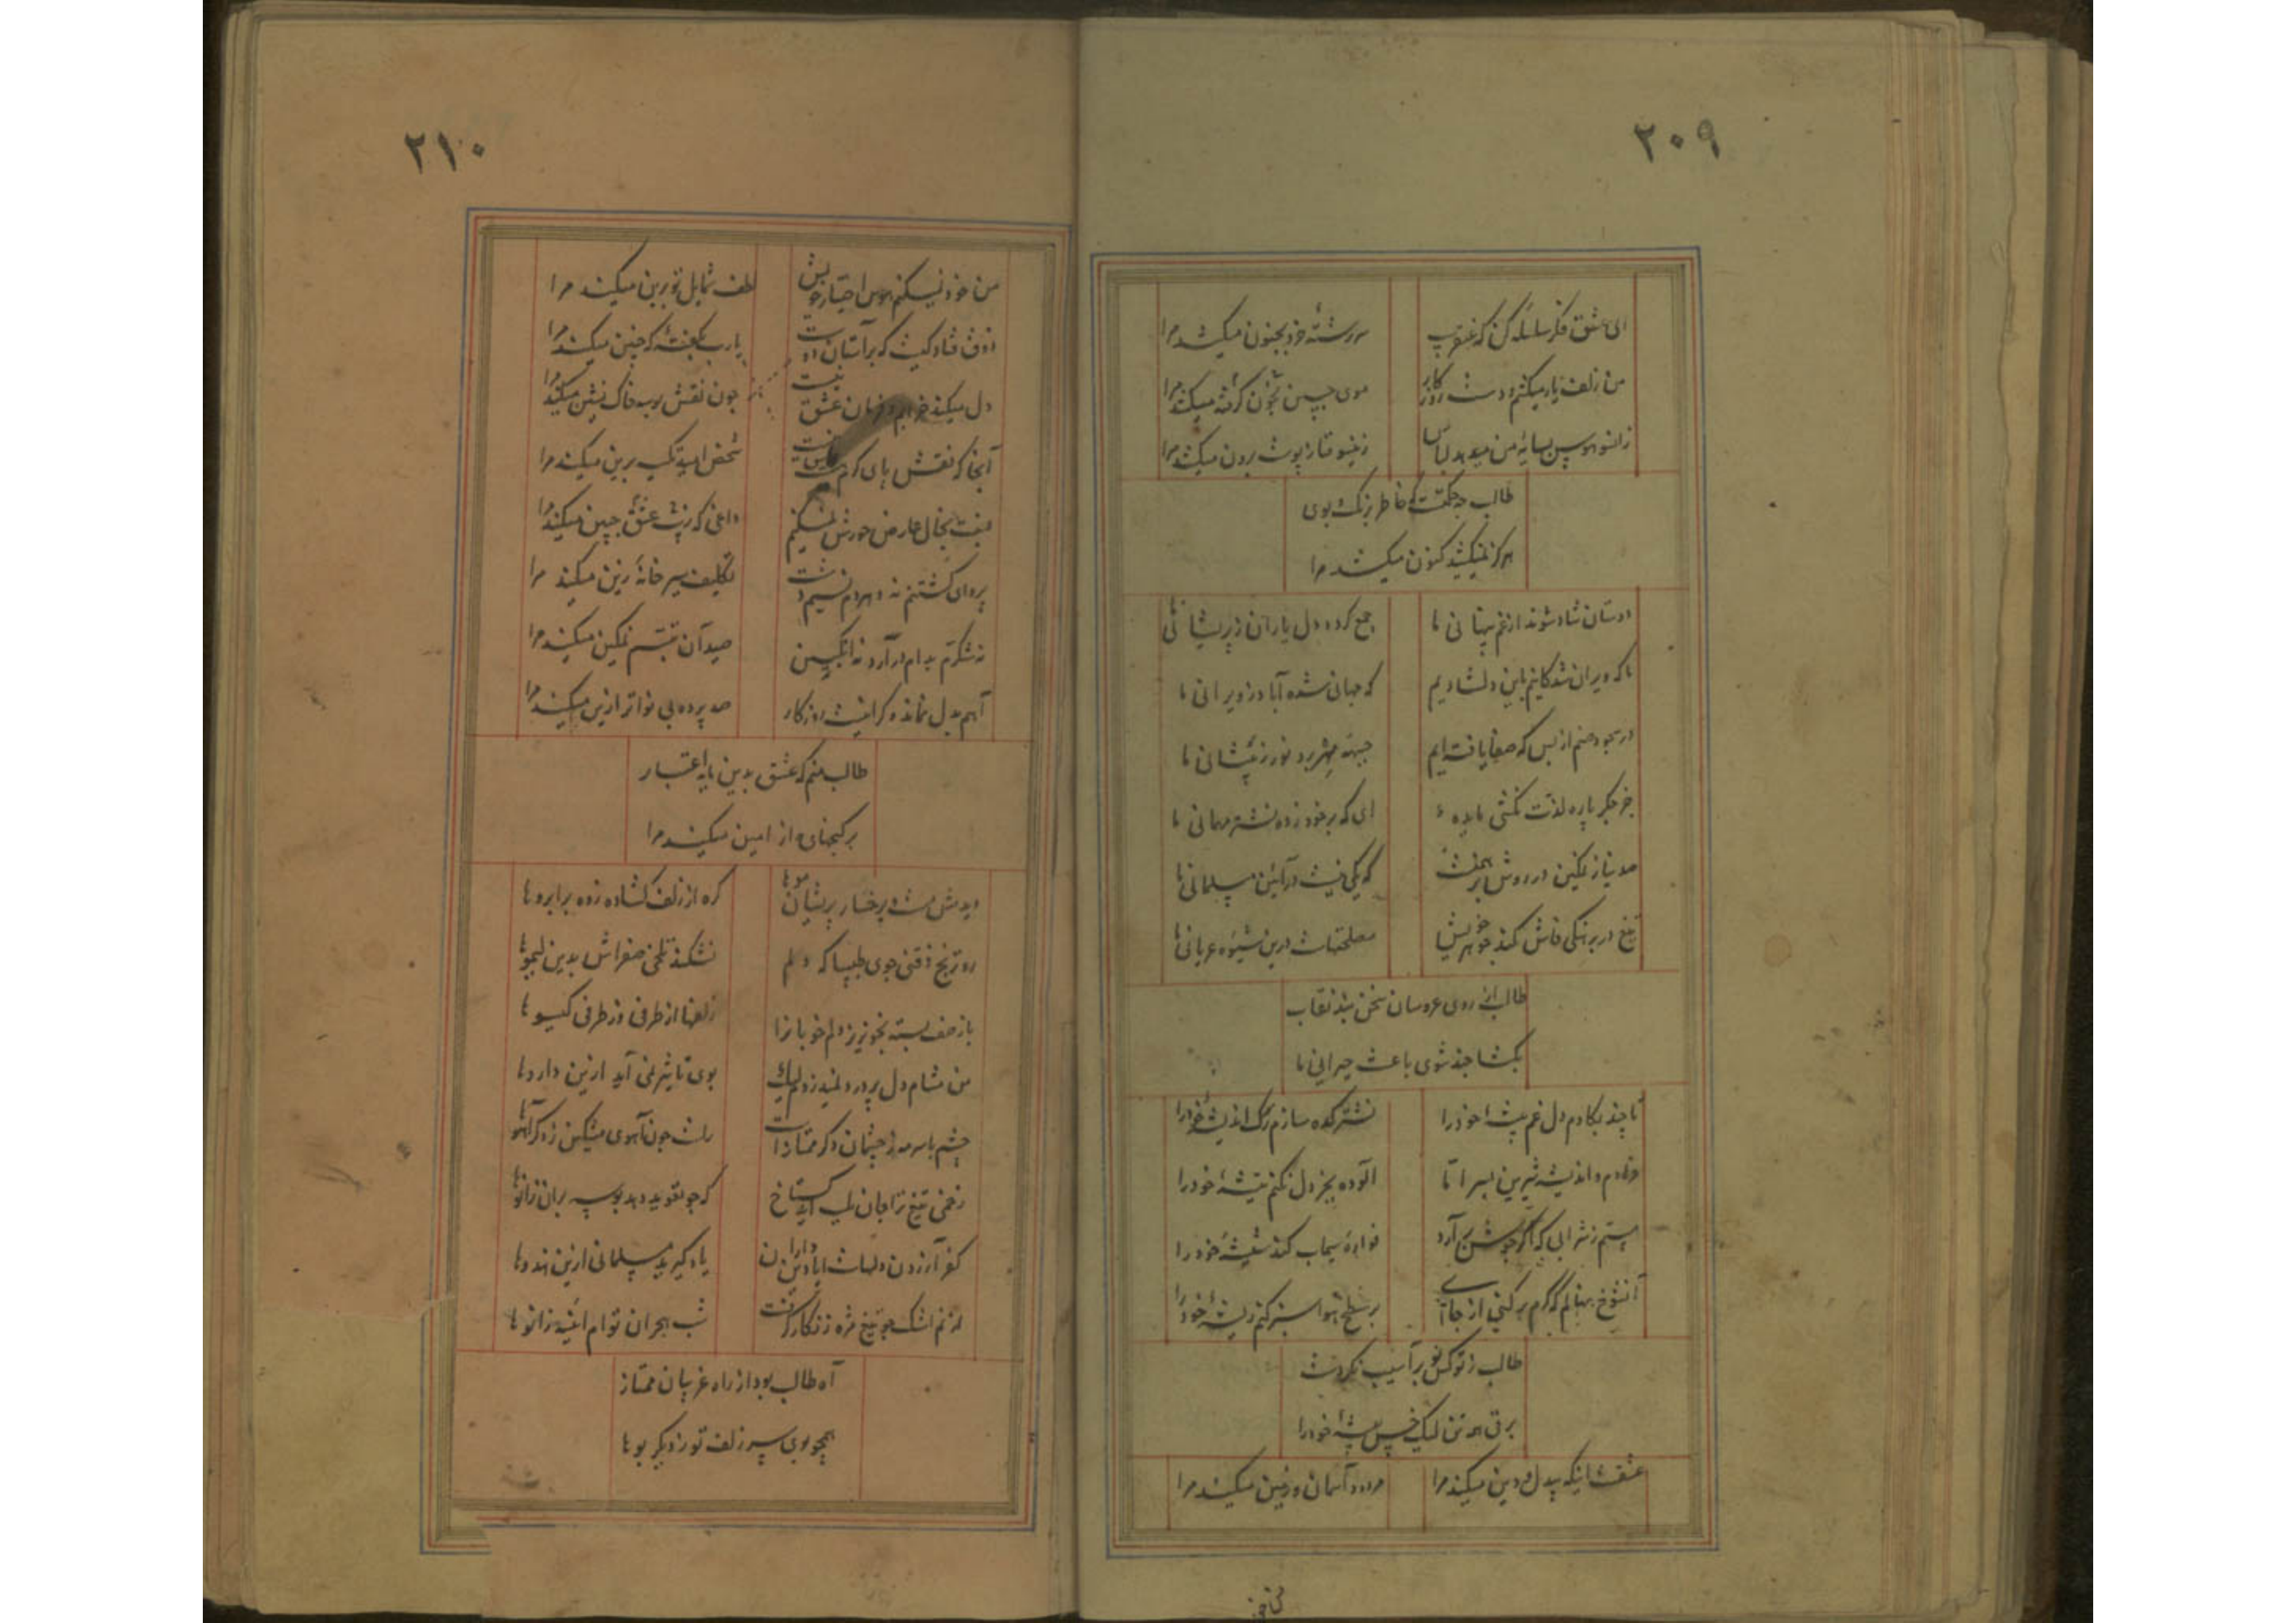 ۲۰۹
ای عشق فکر سلسله کن که عنقریب
سررشته خرد بجنون میکشد مرا
من زلف یار میکشم و دست روزکار
موی جبین بخون کرفته میکشد مرا
زانسو هوس بسایه من میدهد لباس
زینسو قنا ز پوست برون میکشد مرا
طالب چه حکمتست که خاطر برنک و بوی
هرکز نمیکشید کنون میکشد مرا
دوستان شاد شوند از غم پنهانی ما
جمع کرده دل یاران ز پریشانی ما
ما که ویران شدکانیم باین دلشادیم
که جهانی شده آباد ز ویرانی ما
در سجود صنم از بس که صفا یافته ایم
جبهه مهر برد نور ز پیشانی ما
جز جکر پاره لذت نکشی مایده
ای که بر خود زده نشتر مهمانی ما
صد نیاز نمکین در روش برهمنست
که یکی نیست در آئین مسلمانی ما
تیغ در برهنکی فاش کند جوهر خویش
مصلحتهاست درین شیوه عریانی ما
طالب از روی عروسان سخن بند نقاب
بکشا چند شوی باعث حیرانی ما
تا چند بکاوم دل غم پیشه خود را
نشتر کده سازم رک اندیشه خود را
فرهادم و اندیشه شیرین بسر اما
آلوده بجز دل نکنم تیشه خود را
مستم ز شرابی که اکر جوش برآرد
فواره سیماب کند شیشه خود را
آنشوخ نهالم که کرم برکنی از جای
بر سطح هوا سبز کنم ریشه خود را
طالب ز توکل نفس بر آسیب نکردست
برق همه تن لیک خس بیشه خود را
عشقست اینکه بیدل و دین میکند مرا
مردود آسمان و زمین میکند مرا
۲۱۰
من خود نمیکنم هوس اختیار خویش
لطف شمایل تو برین میکند مرا
ذوق فتادکیست که بر آستان دوست
یارب بکفته که چنین میکند مرا
دل میکند خرابم و فرمان عشق نیست
چون نقش بوسه خاک نشین میکند مرا
آنجا که نقش پای کرم نیست
شخص امید تکیه برین میکند مرا
نسبت بخال عارض حورش نمیکنم
داغی که زیب عشق جبین میکند مرا
پروای کشتنم نه و هر دم نسیم دشت
تکلیف سیر خانه زین میکند مرا
نه شکرم بدام درآرد نه انکبین
صید آن تبسم نمکین میکند مرا
آهم بدل نماند و کرانیست روزکار
صد پرده بی نواتر ازین میکند مرا
طالب منم که عشق بدین مایه اعتبار
بر کنجهای راز امین میکند مرا
دیدمش دسته برخسار پریشان موها
کره از زلف کشاده زده بر ابروها
رو ترنج ذقنی جوی طبیبا که دلم
نشکند تلخی صفراش بدین لیموها
باز صف بسته بخونریز دلم خوبانرا
زلفها از طرفی وز طرفی کیسوها
من مشام دل پر درد بلندم زد لیک
بوی تاثیر نمی آید ازین داروها
چشم با سرمه ز چشمان دکر ممتازست
راست چون آهوی مشکین ز دکر آهوها
زخمی تیغ ترا جان بلب آید کستاخ
که چو تعوید دهد بوسه بران زانوها
کفر آزردن دلهاست
یاد کیرید مسلمانی ازین هندوها
از نم اشک چو تیغ مژه زنکار کرفت
شب هجران توام آئینه زانوها
آه طالب بود از راه غریبان ممتاز
همچو بوی سر زلف تو ز دیکر بوها